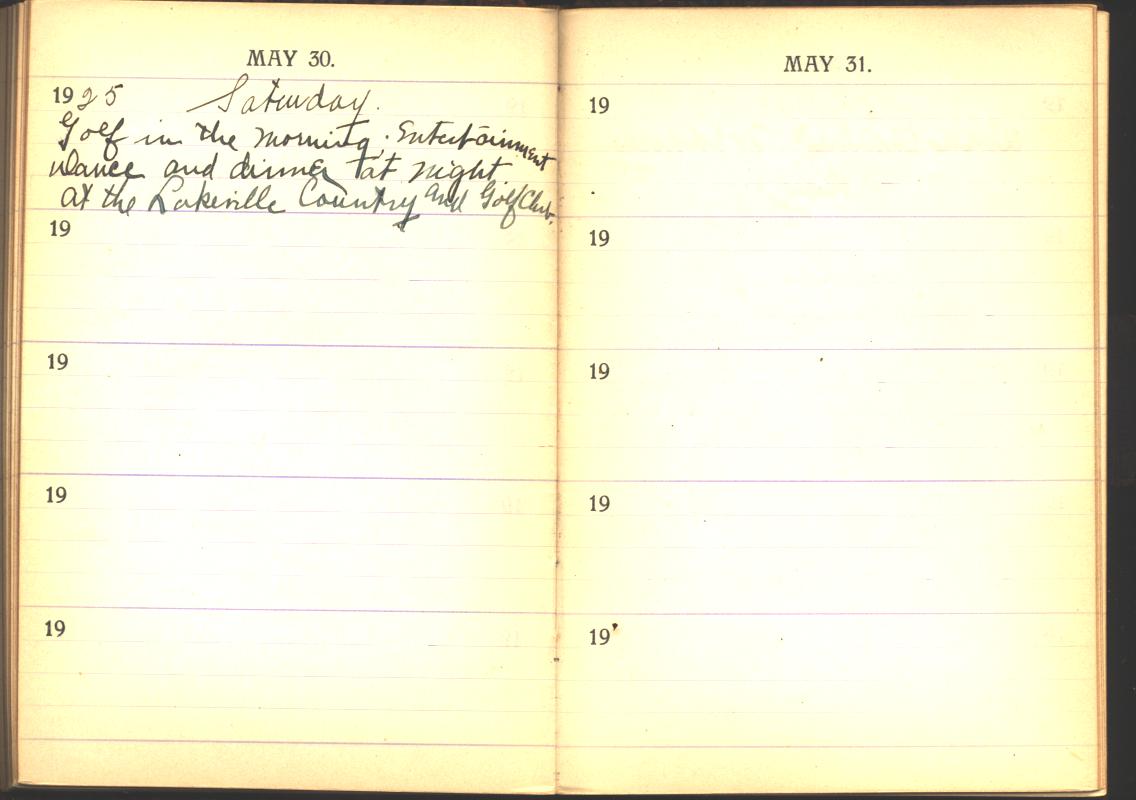 MAY 30.
1925 Saturday.
Golf in the morning; Entertainment
Dance and dinner at night.
at the Lakeville Country and Golf Club.
19
19
19
19
MAY 31.
19
19
19
19
19